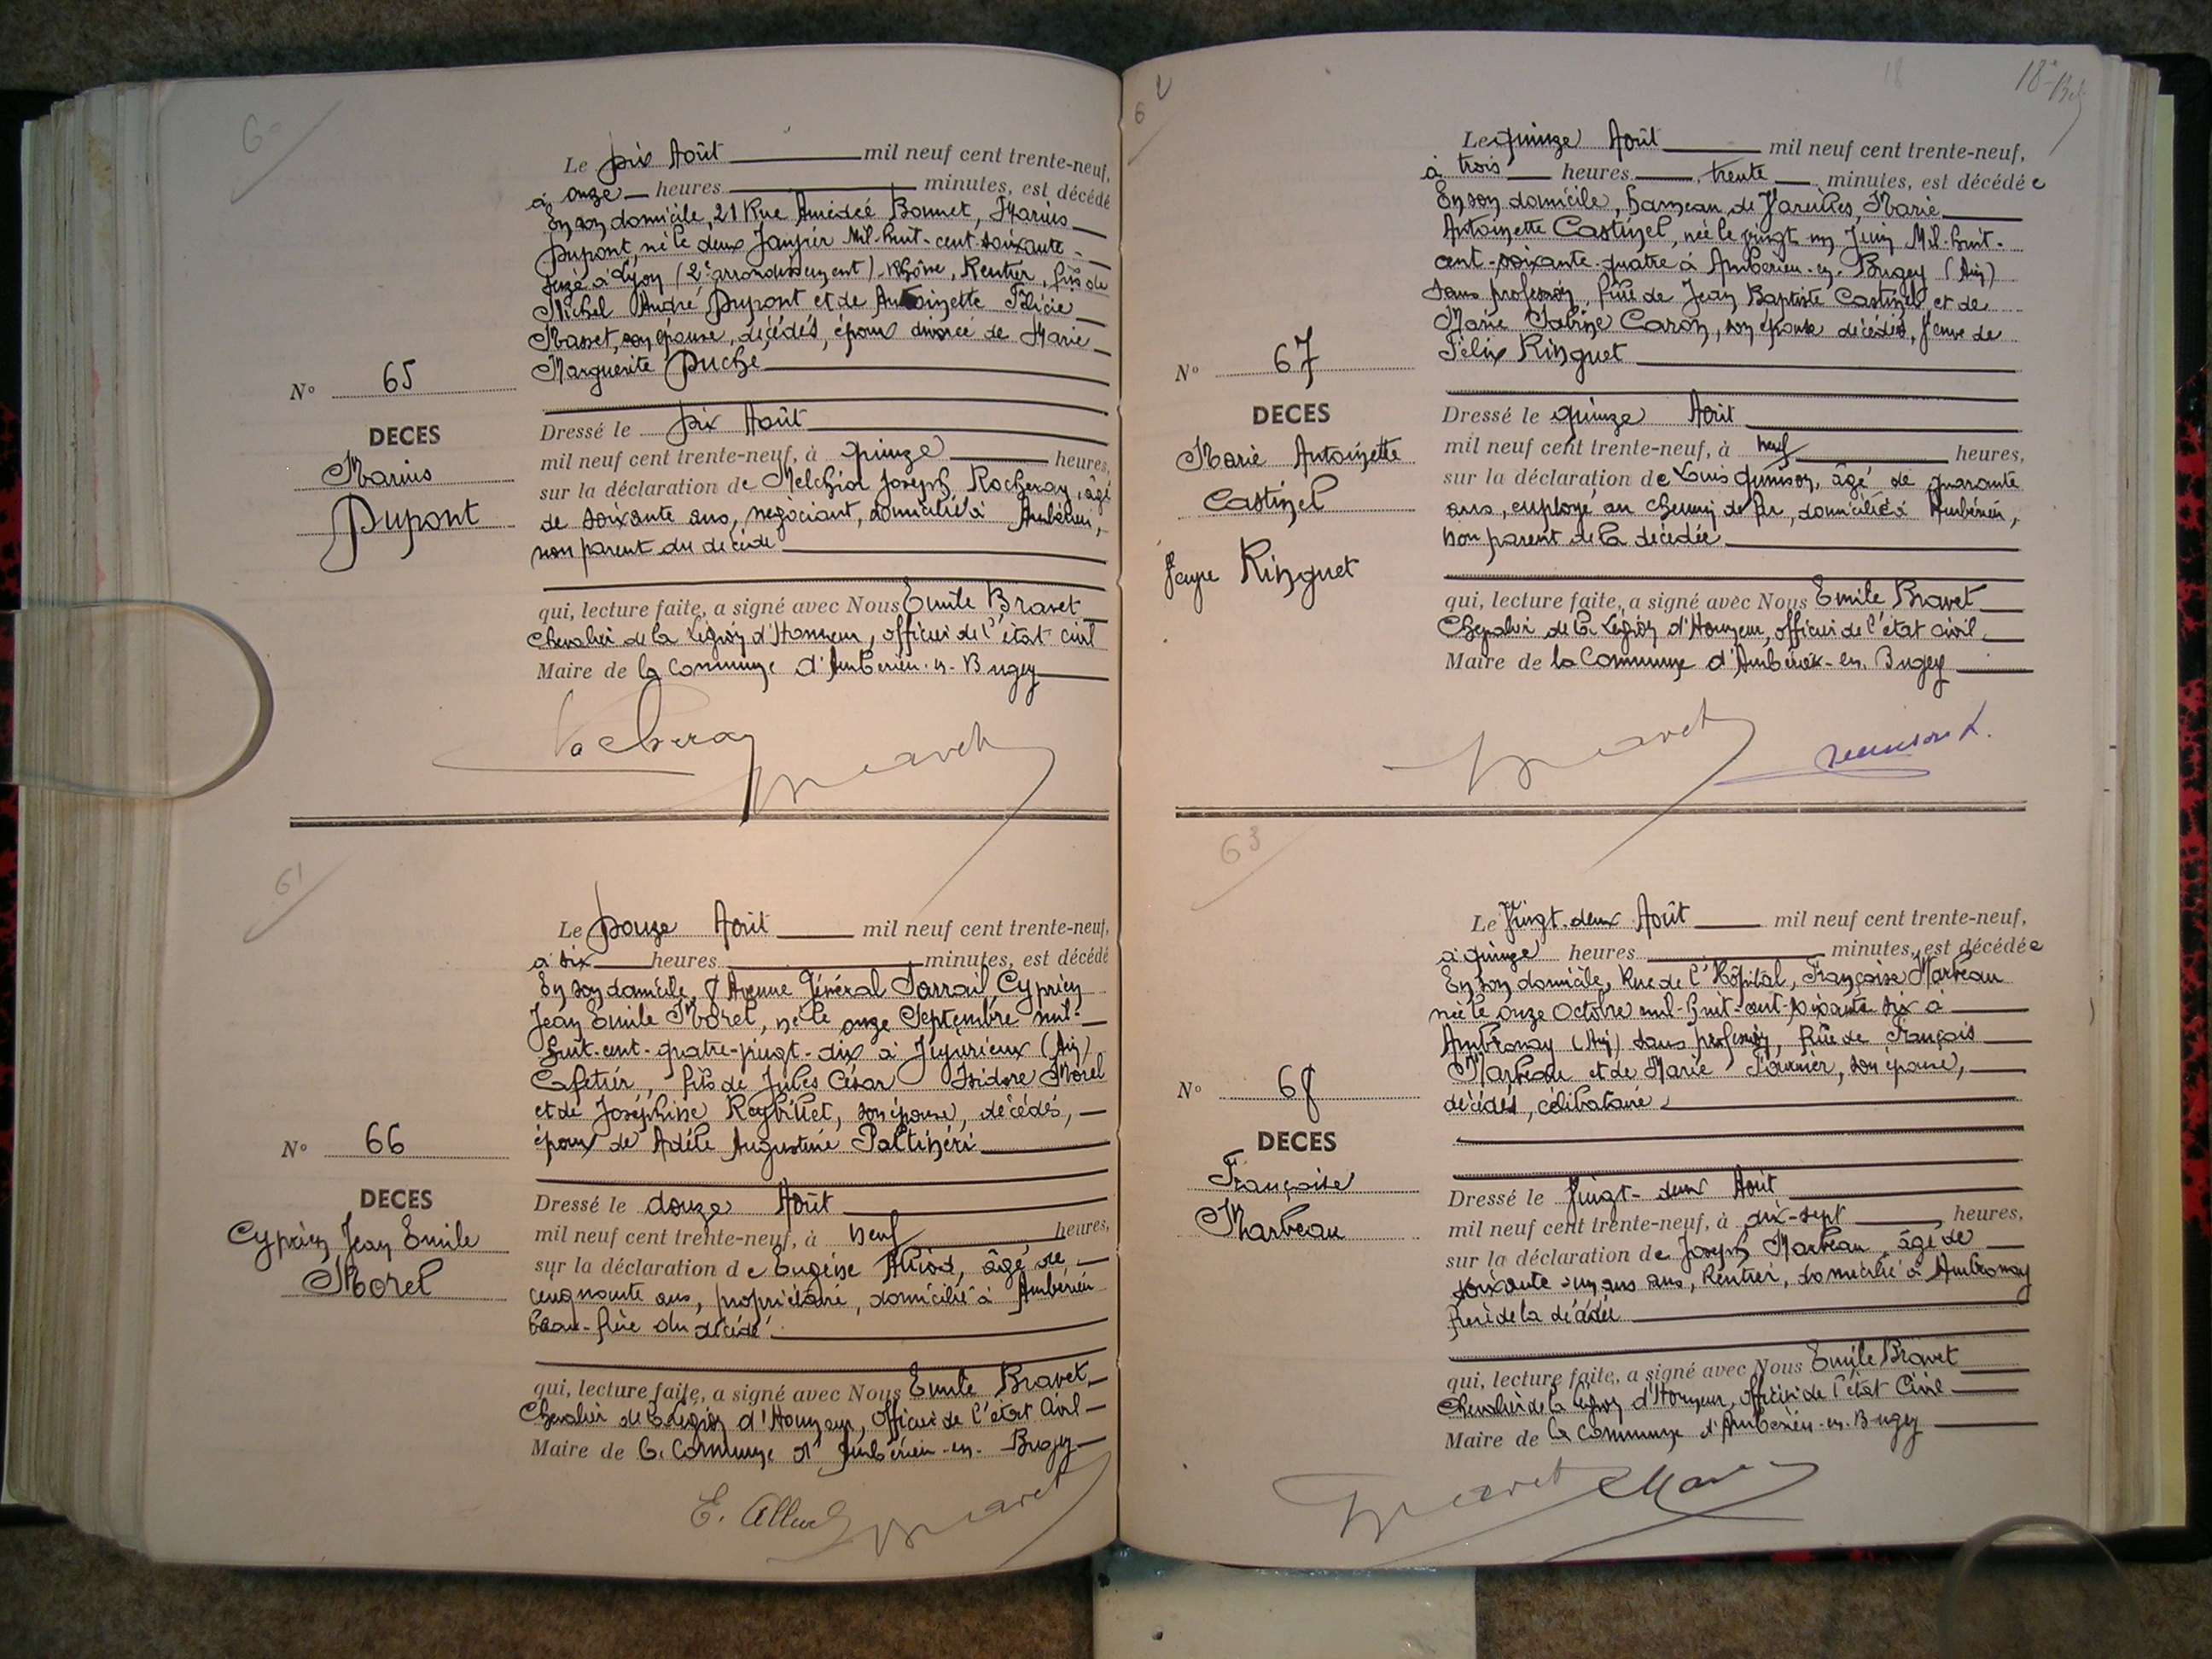 60
Le Dix Août mil neuf cent trente-neuf,
à onze heures minutes, est décédé
En son domicile, 21 Rue Amédée Bonnet, Marius
Dupont, né le deux Janvier Mil-huit-cent-soixante-
seize à Lyon (2e arrondissement) Rhône, Rentier, fils de
Michel André Dupont et de Antoinette Félicie
Masset, son épouse, décédés, époux divorcé de Marie
Marguerite Duche
N° 65
DECES
Marius
Dupont
Dressé le Dix Août
mil neuf cent trente-neuf, à quinze heures,
sur la déclaration de Melchior Joseph Rocheray, âgé
de soixante ans, négociant, domicilié à Ambérieu,
non parent du décédé
qui, lecture faite, a signé avec Nous Emile Bravet
Chevalier de la Légion d'Honneur, officier de l'état civil
Maire de la Commune d'Ambérieu-en-Bugey
Rocheray Bravet
61
Le Douze Août mil neuf cent trente-neuf,
à six heures minutes, est décédé
En son domicile, Avenue Général Sarrail, Cyprien
Jean Emile Morel, né le onze Septembre mil-
huit-cent-quatre-vingt-dix à Jujurieux (Ain)
Cafetier, fils de Jules César Isidore Morel
et de Joséphine Reybillet, son épouse, décédés,
époux de Adèle Augustine Paltinéri
N° 66
DECES
Cyprien Jean Emile
Morel
Dressé le douze Août
mil neuf cent trente-neuf, à neuf heures,
sur la déclaration de Eugène Alliod, âgé de
cinquante ans, propriétaire, domicilié à Ambérieu
beau-frère du décédé
qui, lecture faite, a signé avec Nous Emile Bravet,
Chevalier de la Légion d'Honneur, officier de l'état Civil
Maire de la Commune d'Ambérieu-en-Bugey
E. Alliod Bravet
62
18
18e
Le quinze Août mil neuf cent trente-neuf,
à trois heures trente minutes, est décédée
En son domicile, hameau de Vareilles, Marie
Antoinette Castinel, née le vingt un Juin Mil-huit-
cent-soixante-quatre à Ambérieu-en-Bugey (Ain)
sans profession, fille de Jean Baptiste Castinel et de
Marie Sabine Caron, son épouse décédés, Veuve de
Félix Ringuet
N° 67
DECES
Marie Antoinette
Castinel
Veuve Ringuet
Dressé le quinze Août
mil neuf cent trente-neuf, à neuf heures,
sur la déclaration de Louis Junison, âgé de quarante
ans, employé au chemin de fer, domicilié à Ambérieu,
non parent de la décédée
qui, lecture faite, a signé avec Nous Emile Bravet
Chevalier de la Légion d'Honneur, officier de l'état civil
Maire de la Commune d'Ambérieu-en-Bugey
Bravet
63
Le Vingt-deux Août mil neuf cent trente-neuf,
à quinze heures minutes, est décédée
En son domicile, Rue de l'Hôpital, Françoise Marbeau
née le onze Octobre mil-huit-cent-soixante six à
Ambronay (Ain) sans profession, fille de François
Marbeau et de Marie Fournier, son épouse,
décédés, célibataire
N° 68
DECES
Françoise
Marbeau
Dressé le Vingt-deux Août
mil neuf cent trente-neuf, à dix-sept heures,
sur la déclaration de Joseph Marbeau, âgé de
soixante-un ans ans, Rentier, domicilié à Ambronay
frère de la décédée
qui, lecture faite, a signé avec Nous Emile Bravet
Chevalier de la Légion d'Honneur, Officier de l'état Civil
Maire de la Commune d'Ambérieu-en-Bugey
Bravet